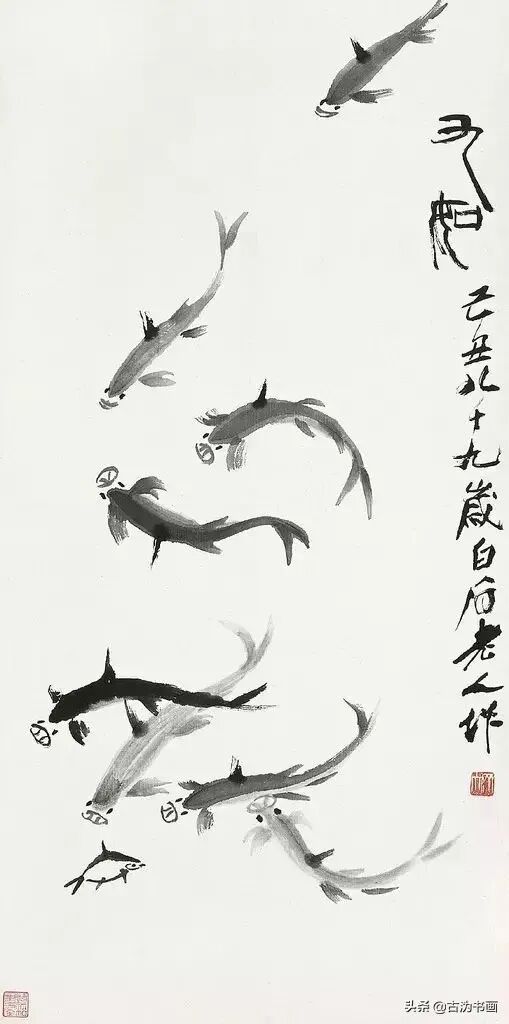 九如
己丑八十九歲白石老人作
头条 @古沩书画